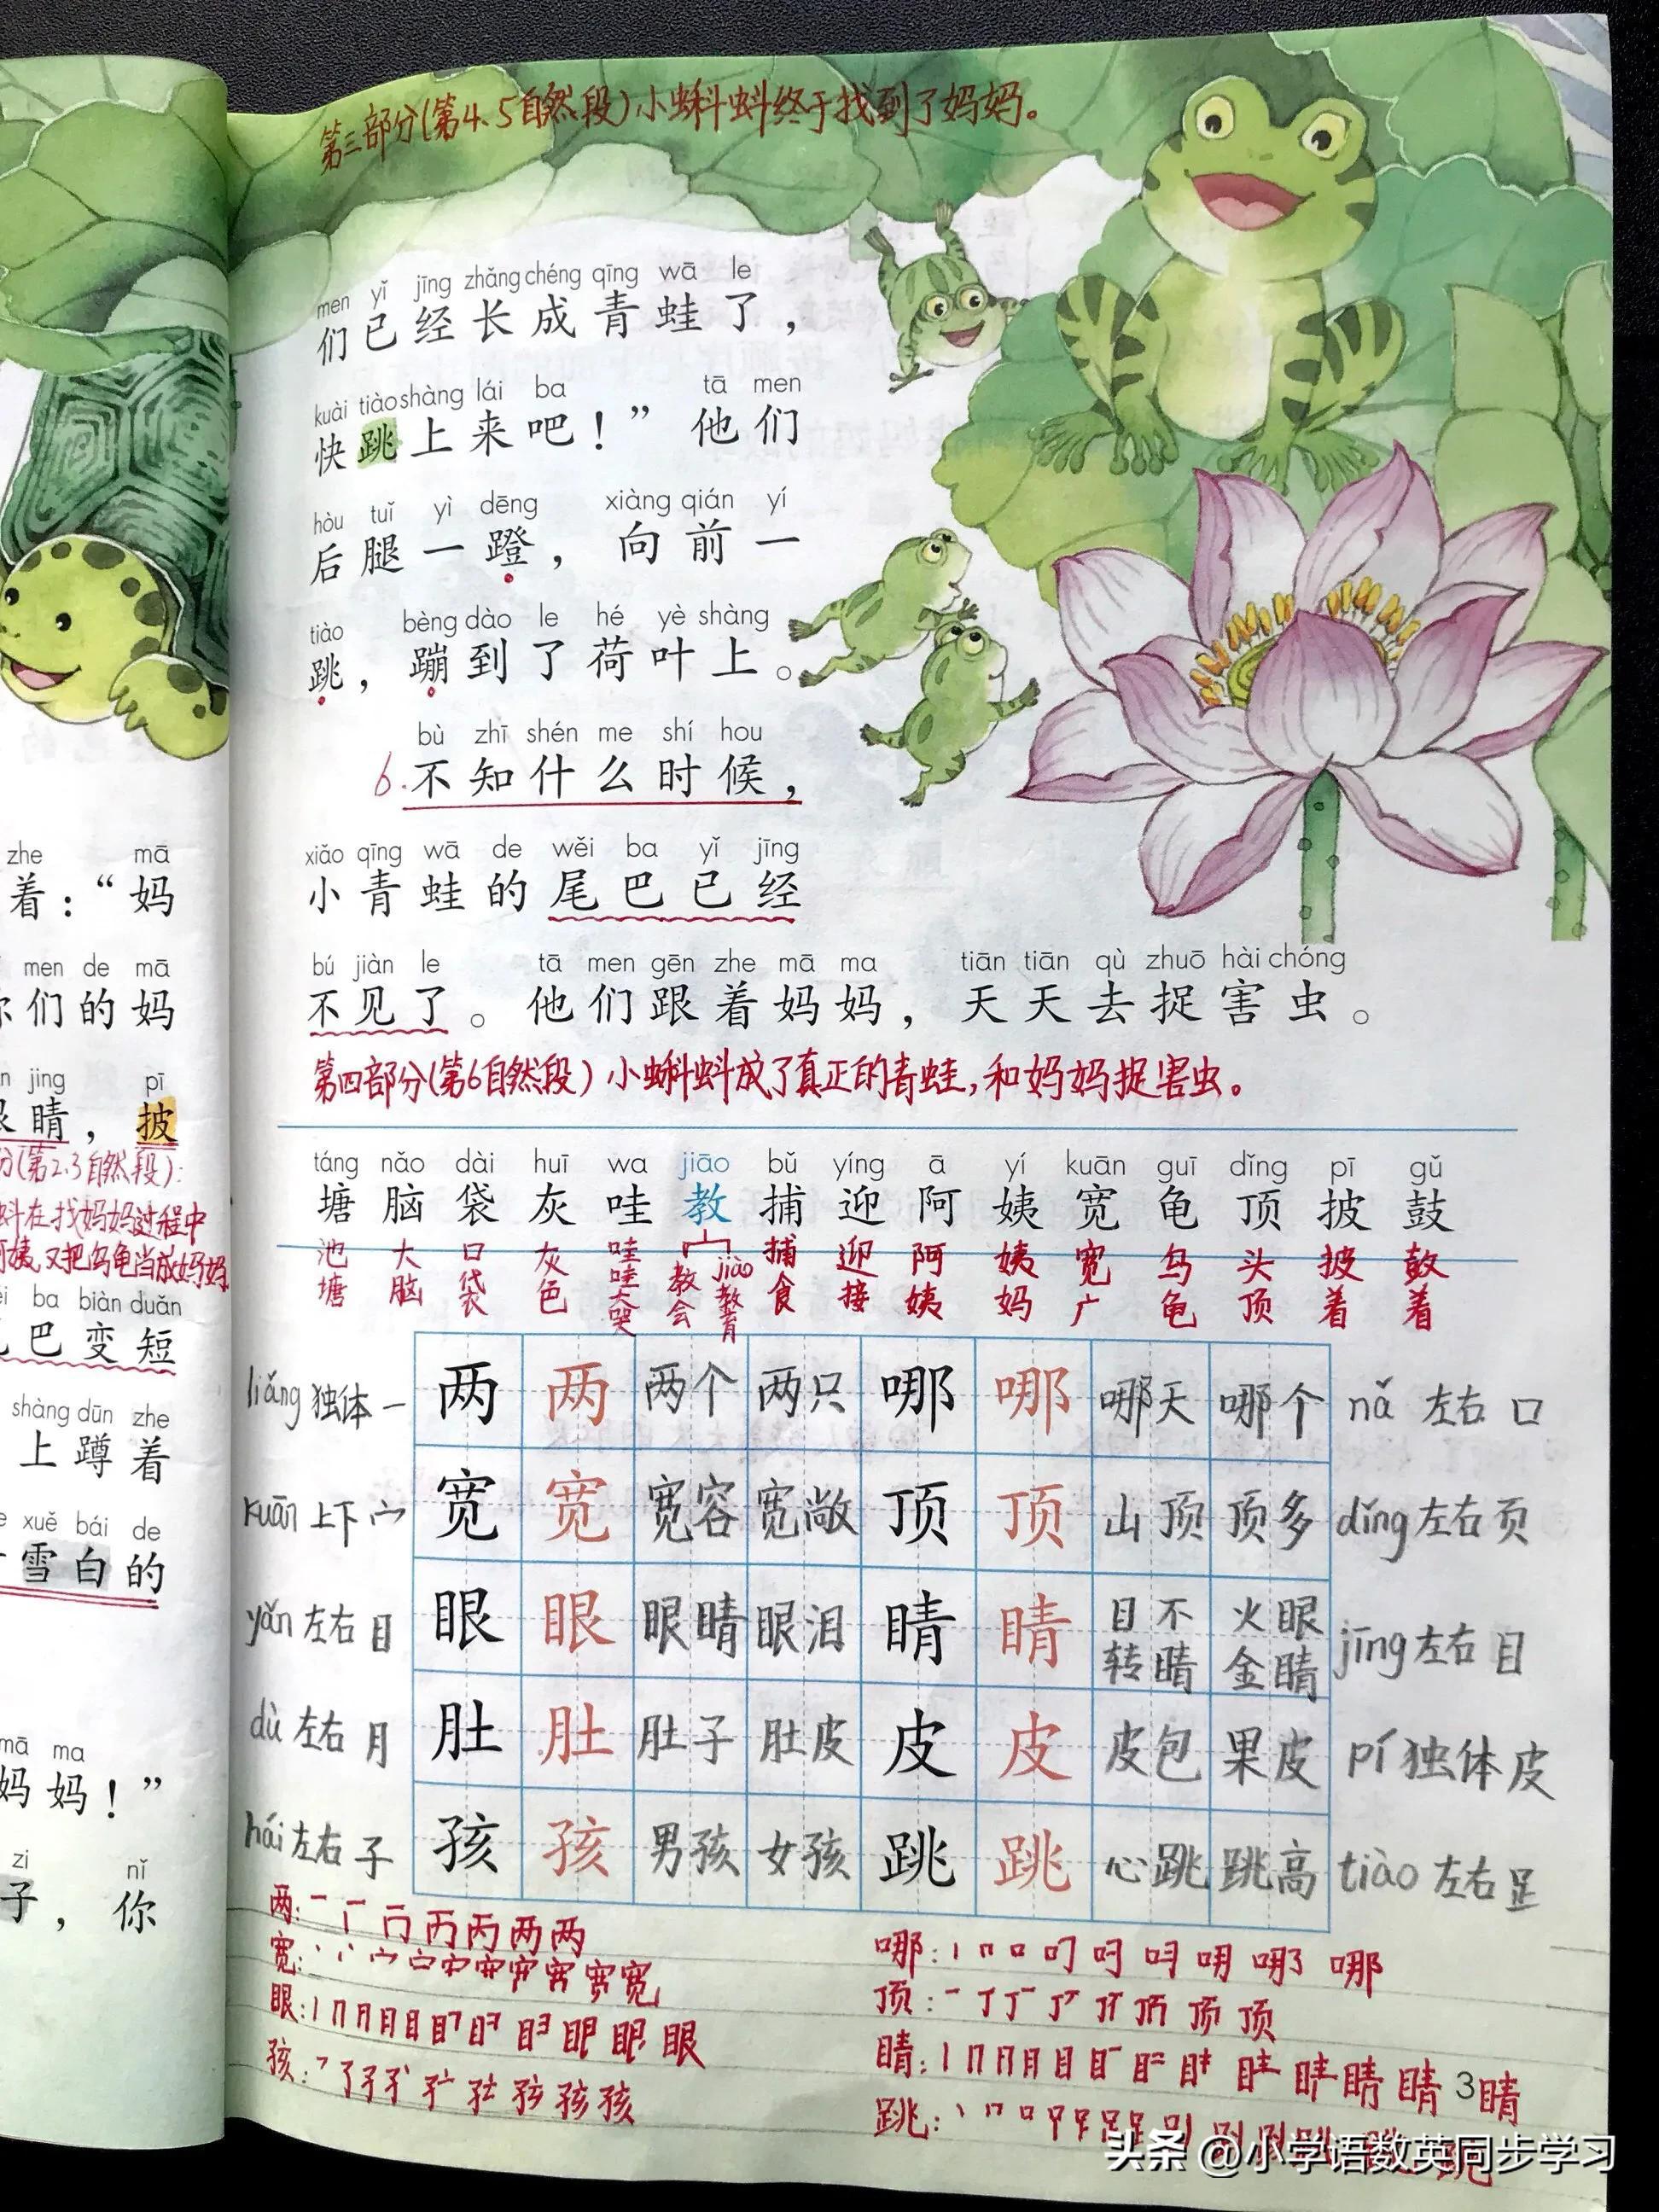 zhe mā
着：“妈
men de mā
你们的妈
jing pī
眼睛，披
分（第2.3自然段）：
蚪在找妈妈过程中
阿姨，又把乌龟当成妈妈
ba biàn duǎn
巴变短
shàng dūn zhe
上蹲着
xuě bái de
雪白的
mā ma
妈妈！”
zi nǐ
子，你
第三部分（第4、5自然段）小蝌蚪终于找到了妈妈。
men yǐ jīng zhǎng chéng qīng wā le
们已经长成青蛙了，
kuài tiào shàng lái ba tā men
快跳上来吧！”他们
hòu tuǐ yì dēng xiàng qián yí
后腿一蹬，向前一
tiào bèng dào le hé yè shàng
跳，蹦到了荷叶上。
bù zhī shén me shí hou
6.不知什么时候，
xiǎo qīng wā de wěi ba yǐ jīng
小青蛙的尾巴已经
bú jiàn le tā men gēn zhe mā ma tiān tiān qù zhuō hài chóng
不见了。他们跟着妈妈，天天去捉害虫。
第四部分（第6自然段）小蝌蚪成了真正的青蛙，和妈妈捉害虫。
táng nǎo dài huī wa jiāo bǔ yíng ā yí kuān guī dǐng pī gǔ
塘脑袋灰哇教捕迎阿姨宽龟顶披鼓
池塘 大脑 口袋 灰色 哇哇大哭 教会 jiào教育 捕食 迎接 阿姨 姨妈 宽广 乌龟 头顶 披着 鼓着
liǎng 独体 一 两 两 两个 两只 哪 哪 哪天 哪个 nǎ 左右 口
kuān 上下 宀 宽 宽 宽容 宽敞 顶 顶 山顶 顶多 dǐng 左右 页
yǎn 左右 目 眼 眼 眼睛 眼泪 睛 睛 目不转睛 火眼金睛 jīng 左右 目
dù 左右 月 肚 肚 肚子 肚皮 皮 皮 皮包 果皮 pí 独体 皮
hái 左右 子 孩 孩 男孩 女孩 跳 跳 心跳 跳高 tiào 左右 足
两：
哪：
宽：
顶：
眼：
睛：
孩：
跳：
3
头条 @小学语数英同步学习